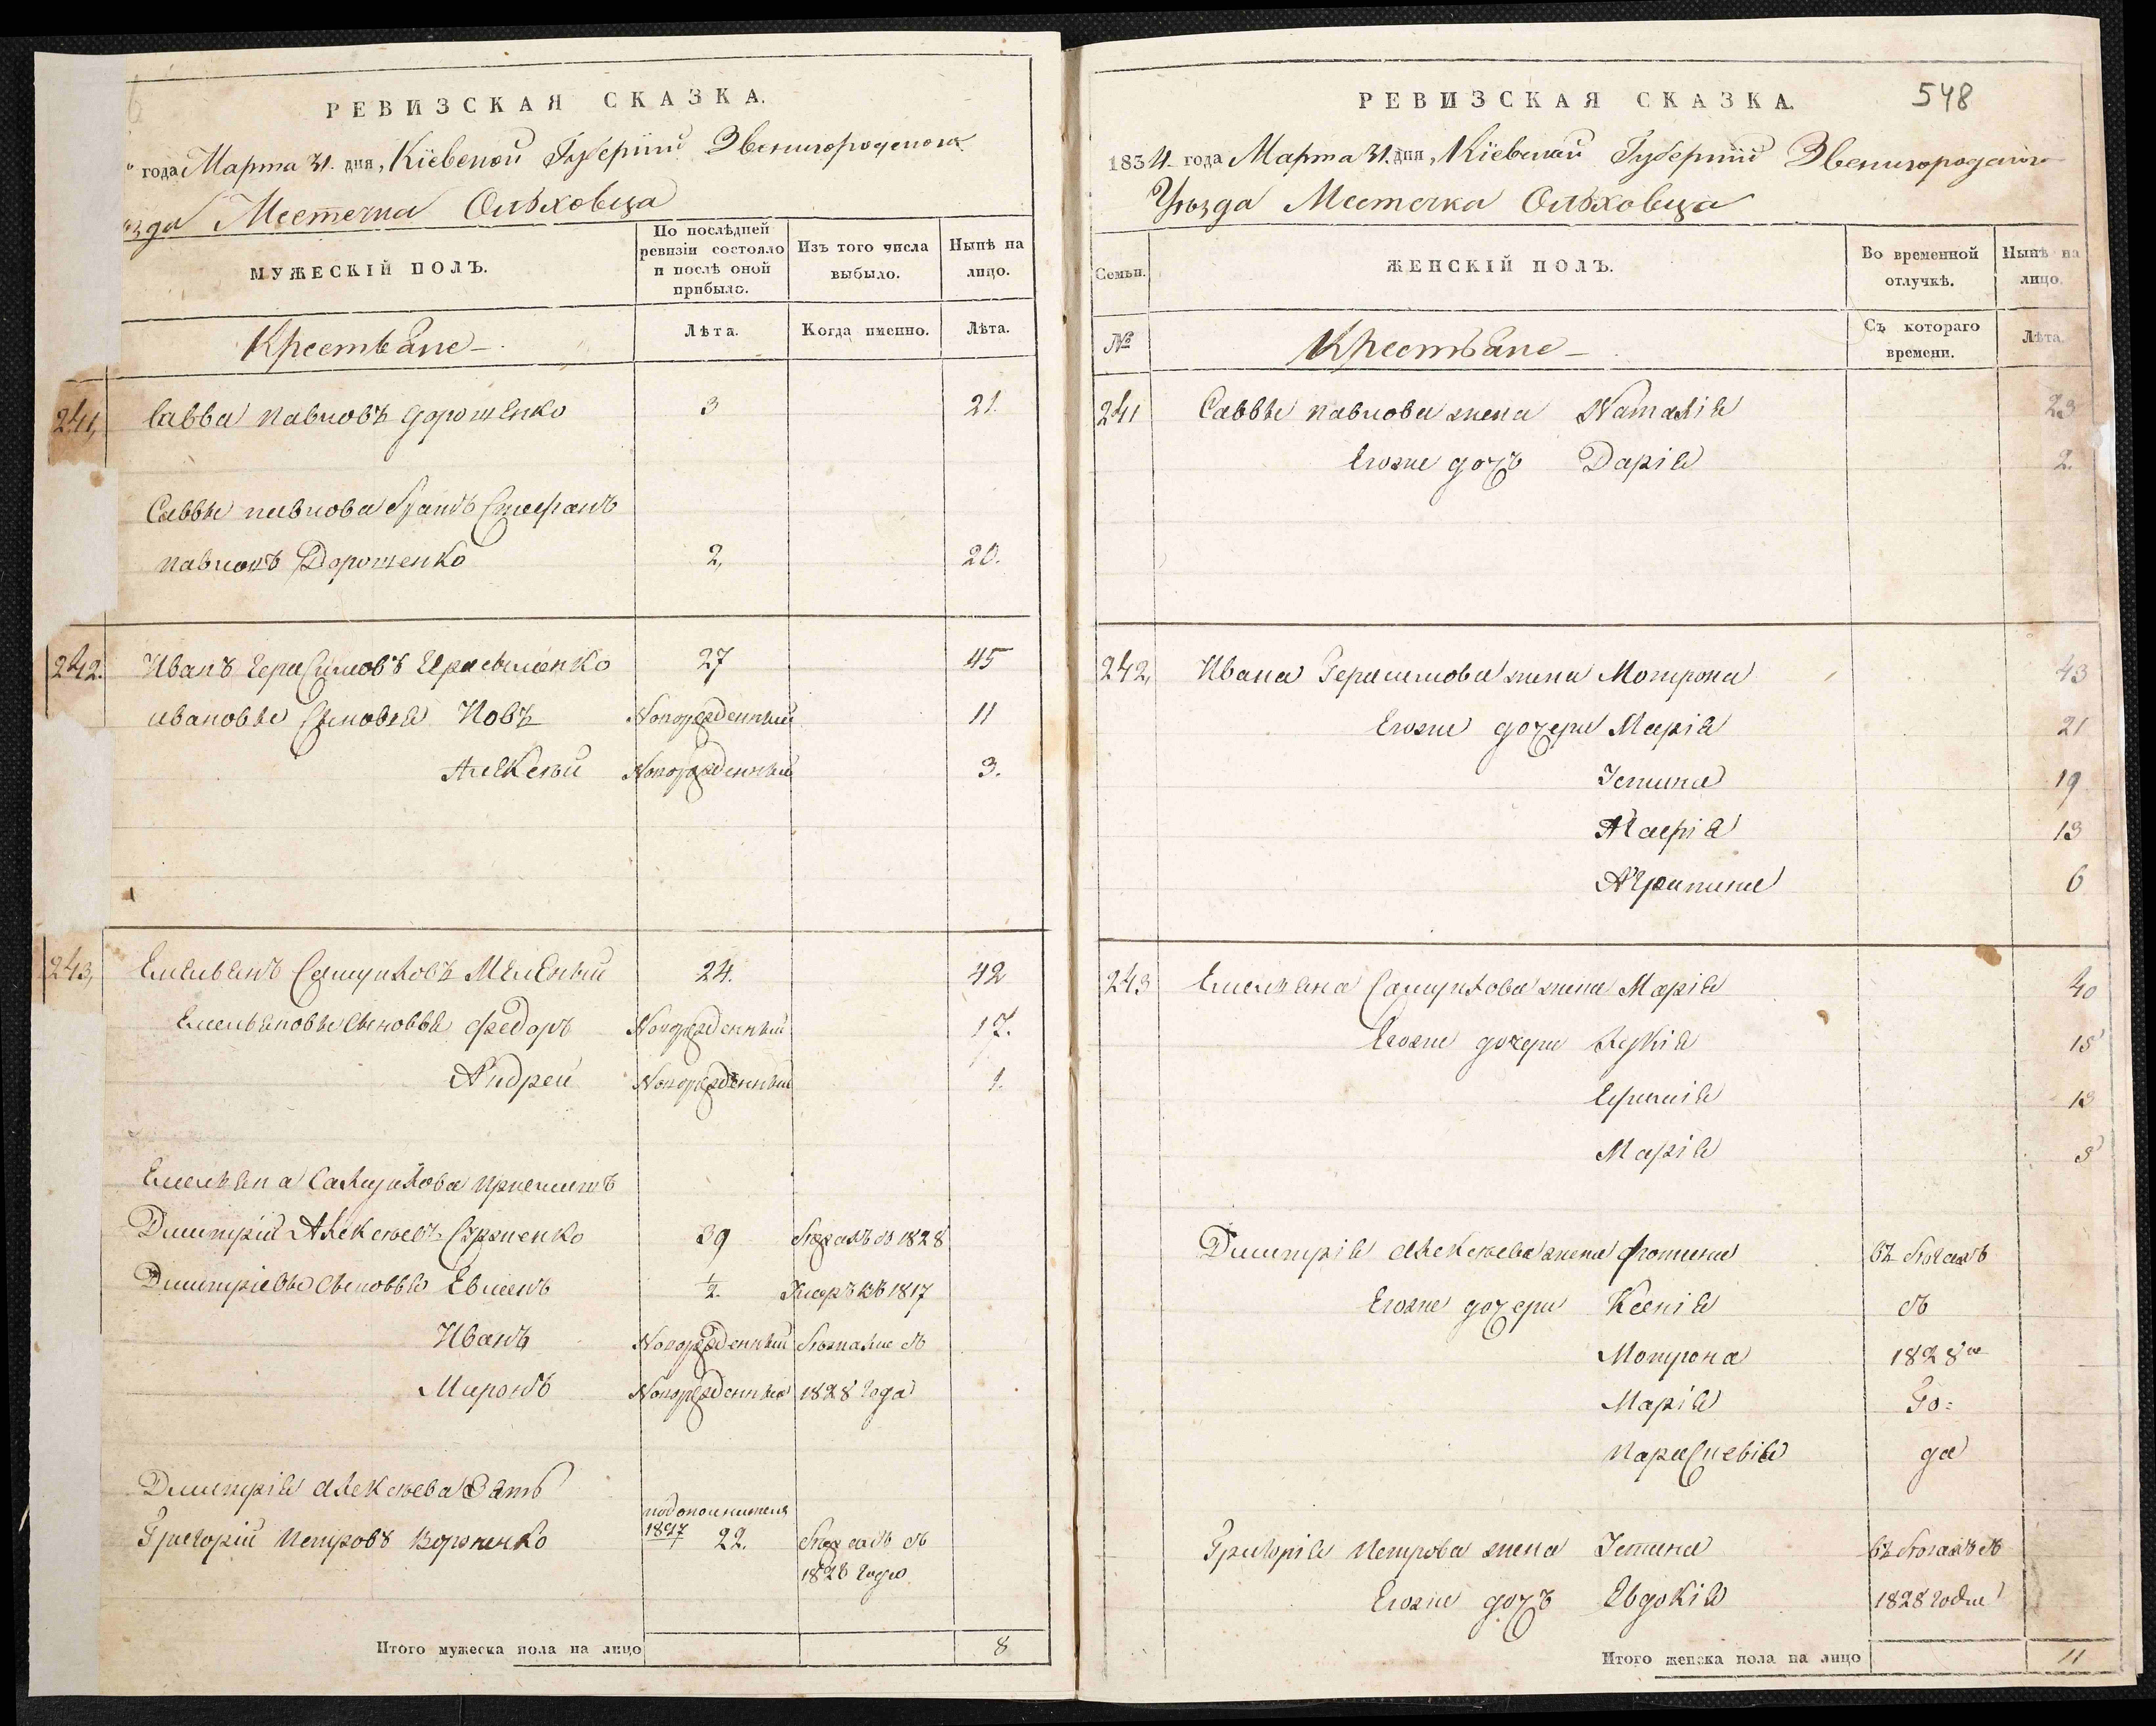 РЕВИЗСКАЯ СКАЗКА.
года Марта 31. дня, Кіевской Губерніи Звенигородскога
Местечка Ольховца
МУЖЕСКІЙ ПОЛЪ.
По послѣдней ревизіи состояло и послѣ оной прибыло.
Изъ того числа выбыло.
Нынѣ на лицо.
Крестьяне
Лѣта.
Когда именно.
Лѣта.
241, Савва павловъ дорошенко 3 21.
Саввы павлова братъ Стефанъ
павловъ Дорошенко 2, 20.
242. Иванъ Герасимовъ 27 45
ивановы сыновья Іовъ Новорожденный 11
Алексѣй Новорожденный 3.
243, Емельянъ Самуиловъ 24. 42
Емельяновы сыновья Федоръ Новорожденный 17.
Андрей Новорожденный 1.
Емельяна Самуилова
Димитрій Алексѣевъ 39 1828
Димитріевы сыновья ½ 1817
Иванъ Новорожденный
Миронъ Новорожденный 1828 года
Димитрія Алексѣева Зять
Григорій Петровъ 1827 22.
1828 году
Итого мужеска пола на лицо 8
РЕВИЗСКАЯ СКАЗКА. 548
1834 года Марта 31. дня, Кіевской Губерніи Звенигородскаго
Уѣзда Местечка Ольховца
Семьи.
ЖЕНСКІЙ ПОЛЪ.
Во временной отлучкѣ.
Нынѣ на лицо.
№
Крестьяне
Съ котораго времени.
Лѣта.
241 Саввы павлова жена Наталія 23
Егоже дочь Дарія 2.
242, Ивана Герасимова жена Мотрона 43
Егоже дочери Марія 21
Істина 19
Марія 13
Агрипина 6
243 Емельяна Самуилова жена Марія 40
Егоже дочери 15
13
Марія
Димитрія Алексѣева жена Фотина въ бѣгахъ
Егоже дочери Ксенія съ
Мотрона 1828го
Марія Го=
Параскевія да
Григорія Петрова жена Істина въ бѣгахъ съ
Егоже дочь Евдокія 1828 года
Итого женска пола на лицо 11